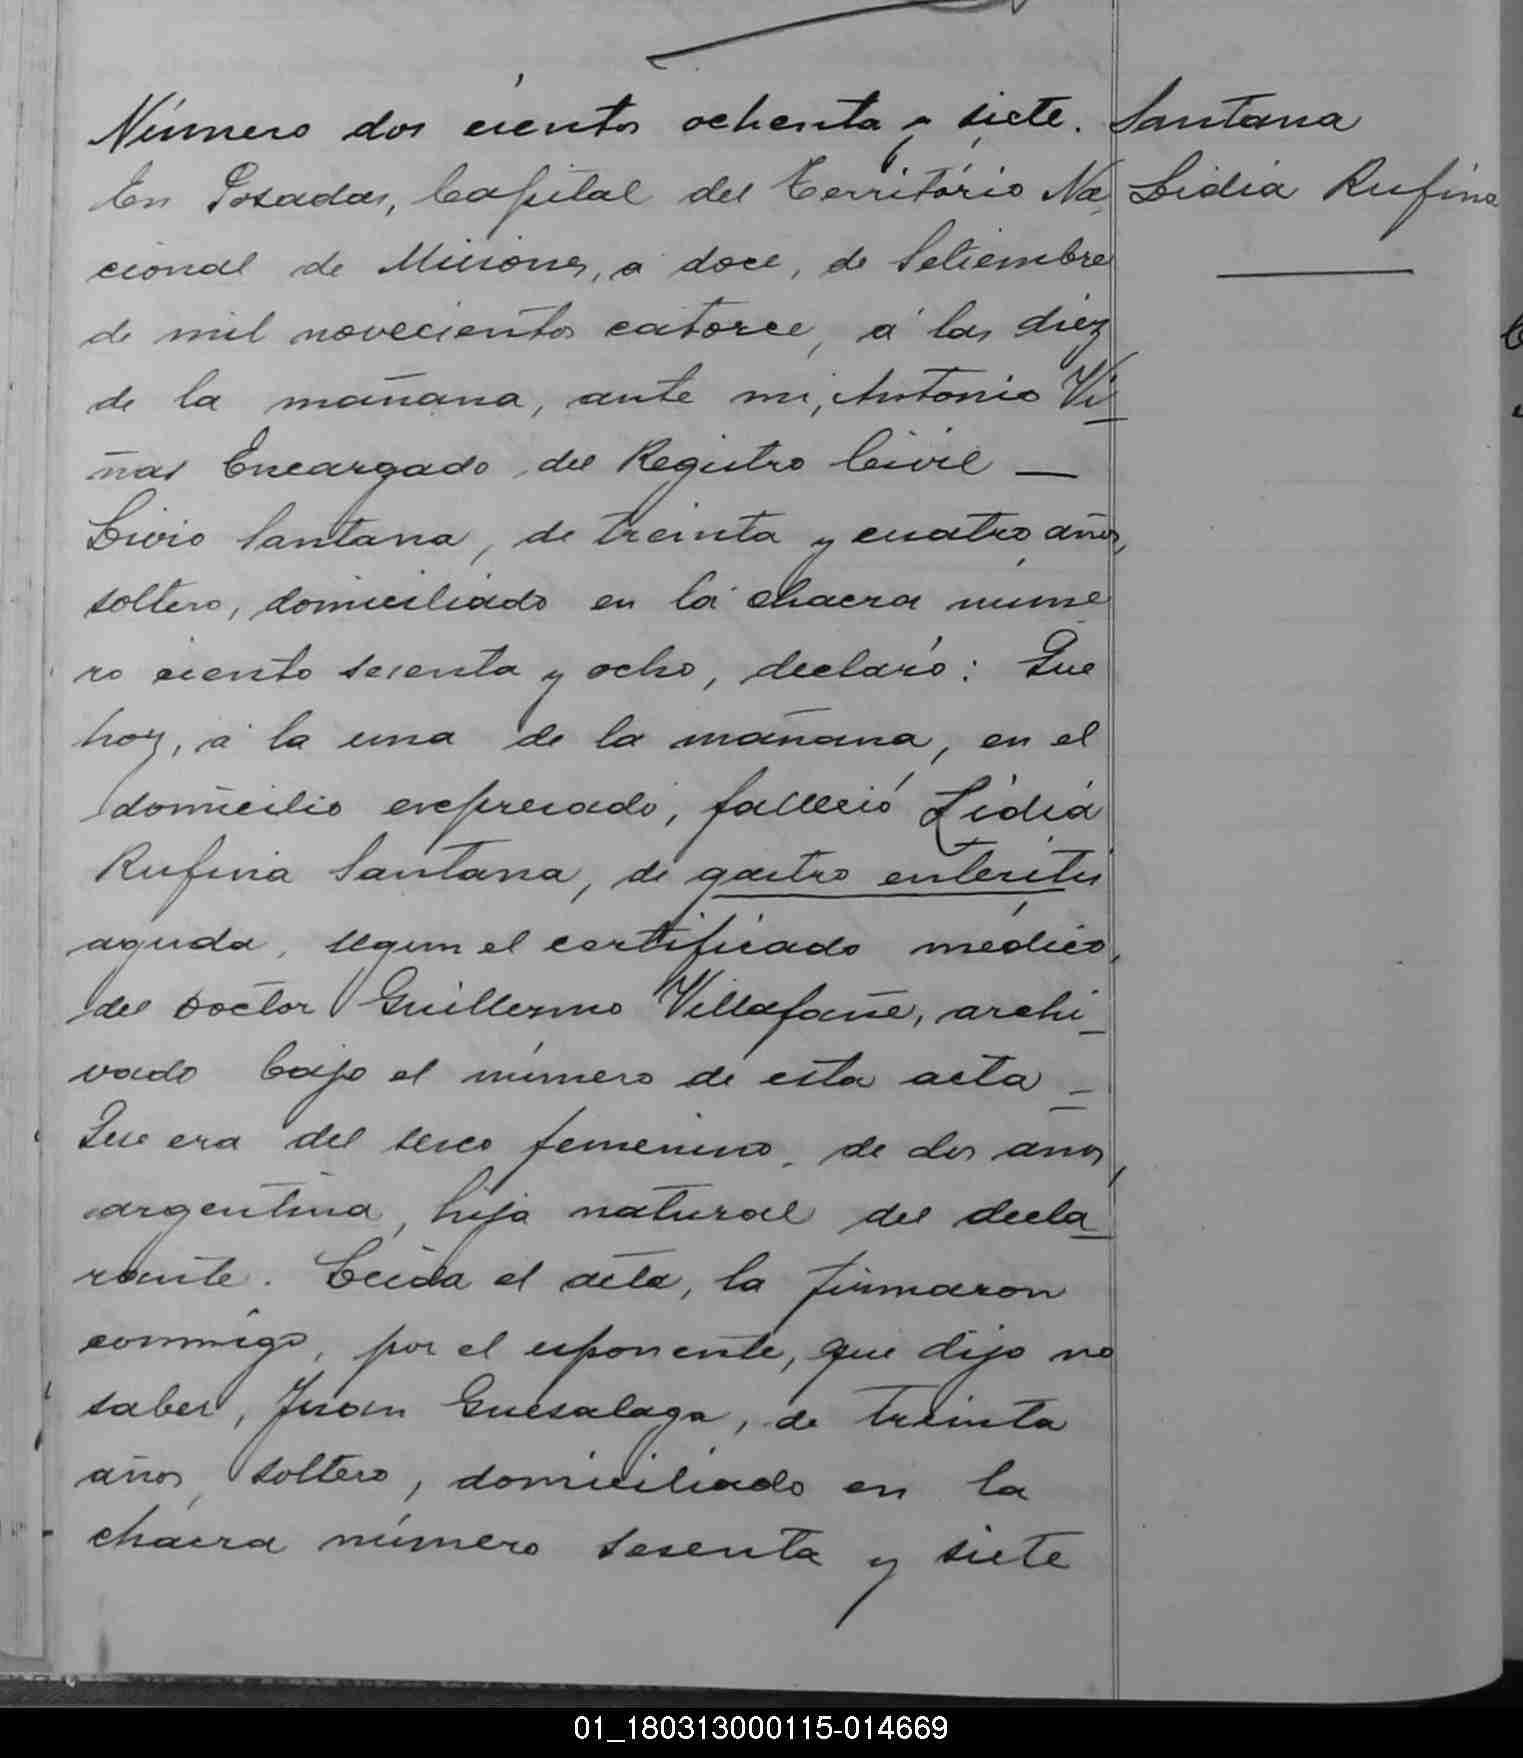 Número dos cientos ochenta y siete.
Santana
Lidia Rufina
En Posadas, Capital del Território Na
cional de Misiones, a doce, de Setiembre
de mil novecientos catorce, á las diez
de la mañana, ante mi, Antonio Vi
ñas Encargado del Registro Civil —
Livio Santana, de treinta y cuatro años,
soltero, domiciliado en la chacra núme
ro ciento sesenta y ocho, declaró: Que
hoy, á la una de la mañana, en el
domicilio expresado, falleció Lidia
Rufina Santana, de gastro enteritis
aguda, segun el certificado médico,
del Doctor Guillermo Villafañe, archi-
vado bajo el número de esta acta -
Que era del sexo femenino, de dos años,
argentina, hija natural del decla
rante. Leida el acta, la firmaron
conmigo, por el esponente, que dijo no
saber, Juan Guesalaga, de treinta
años, soltero, domiciliado en la
chacra número sesenta y siete
01_180313000115-014669